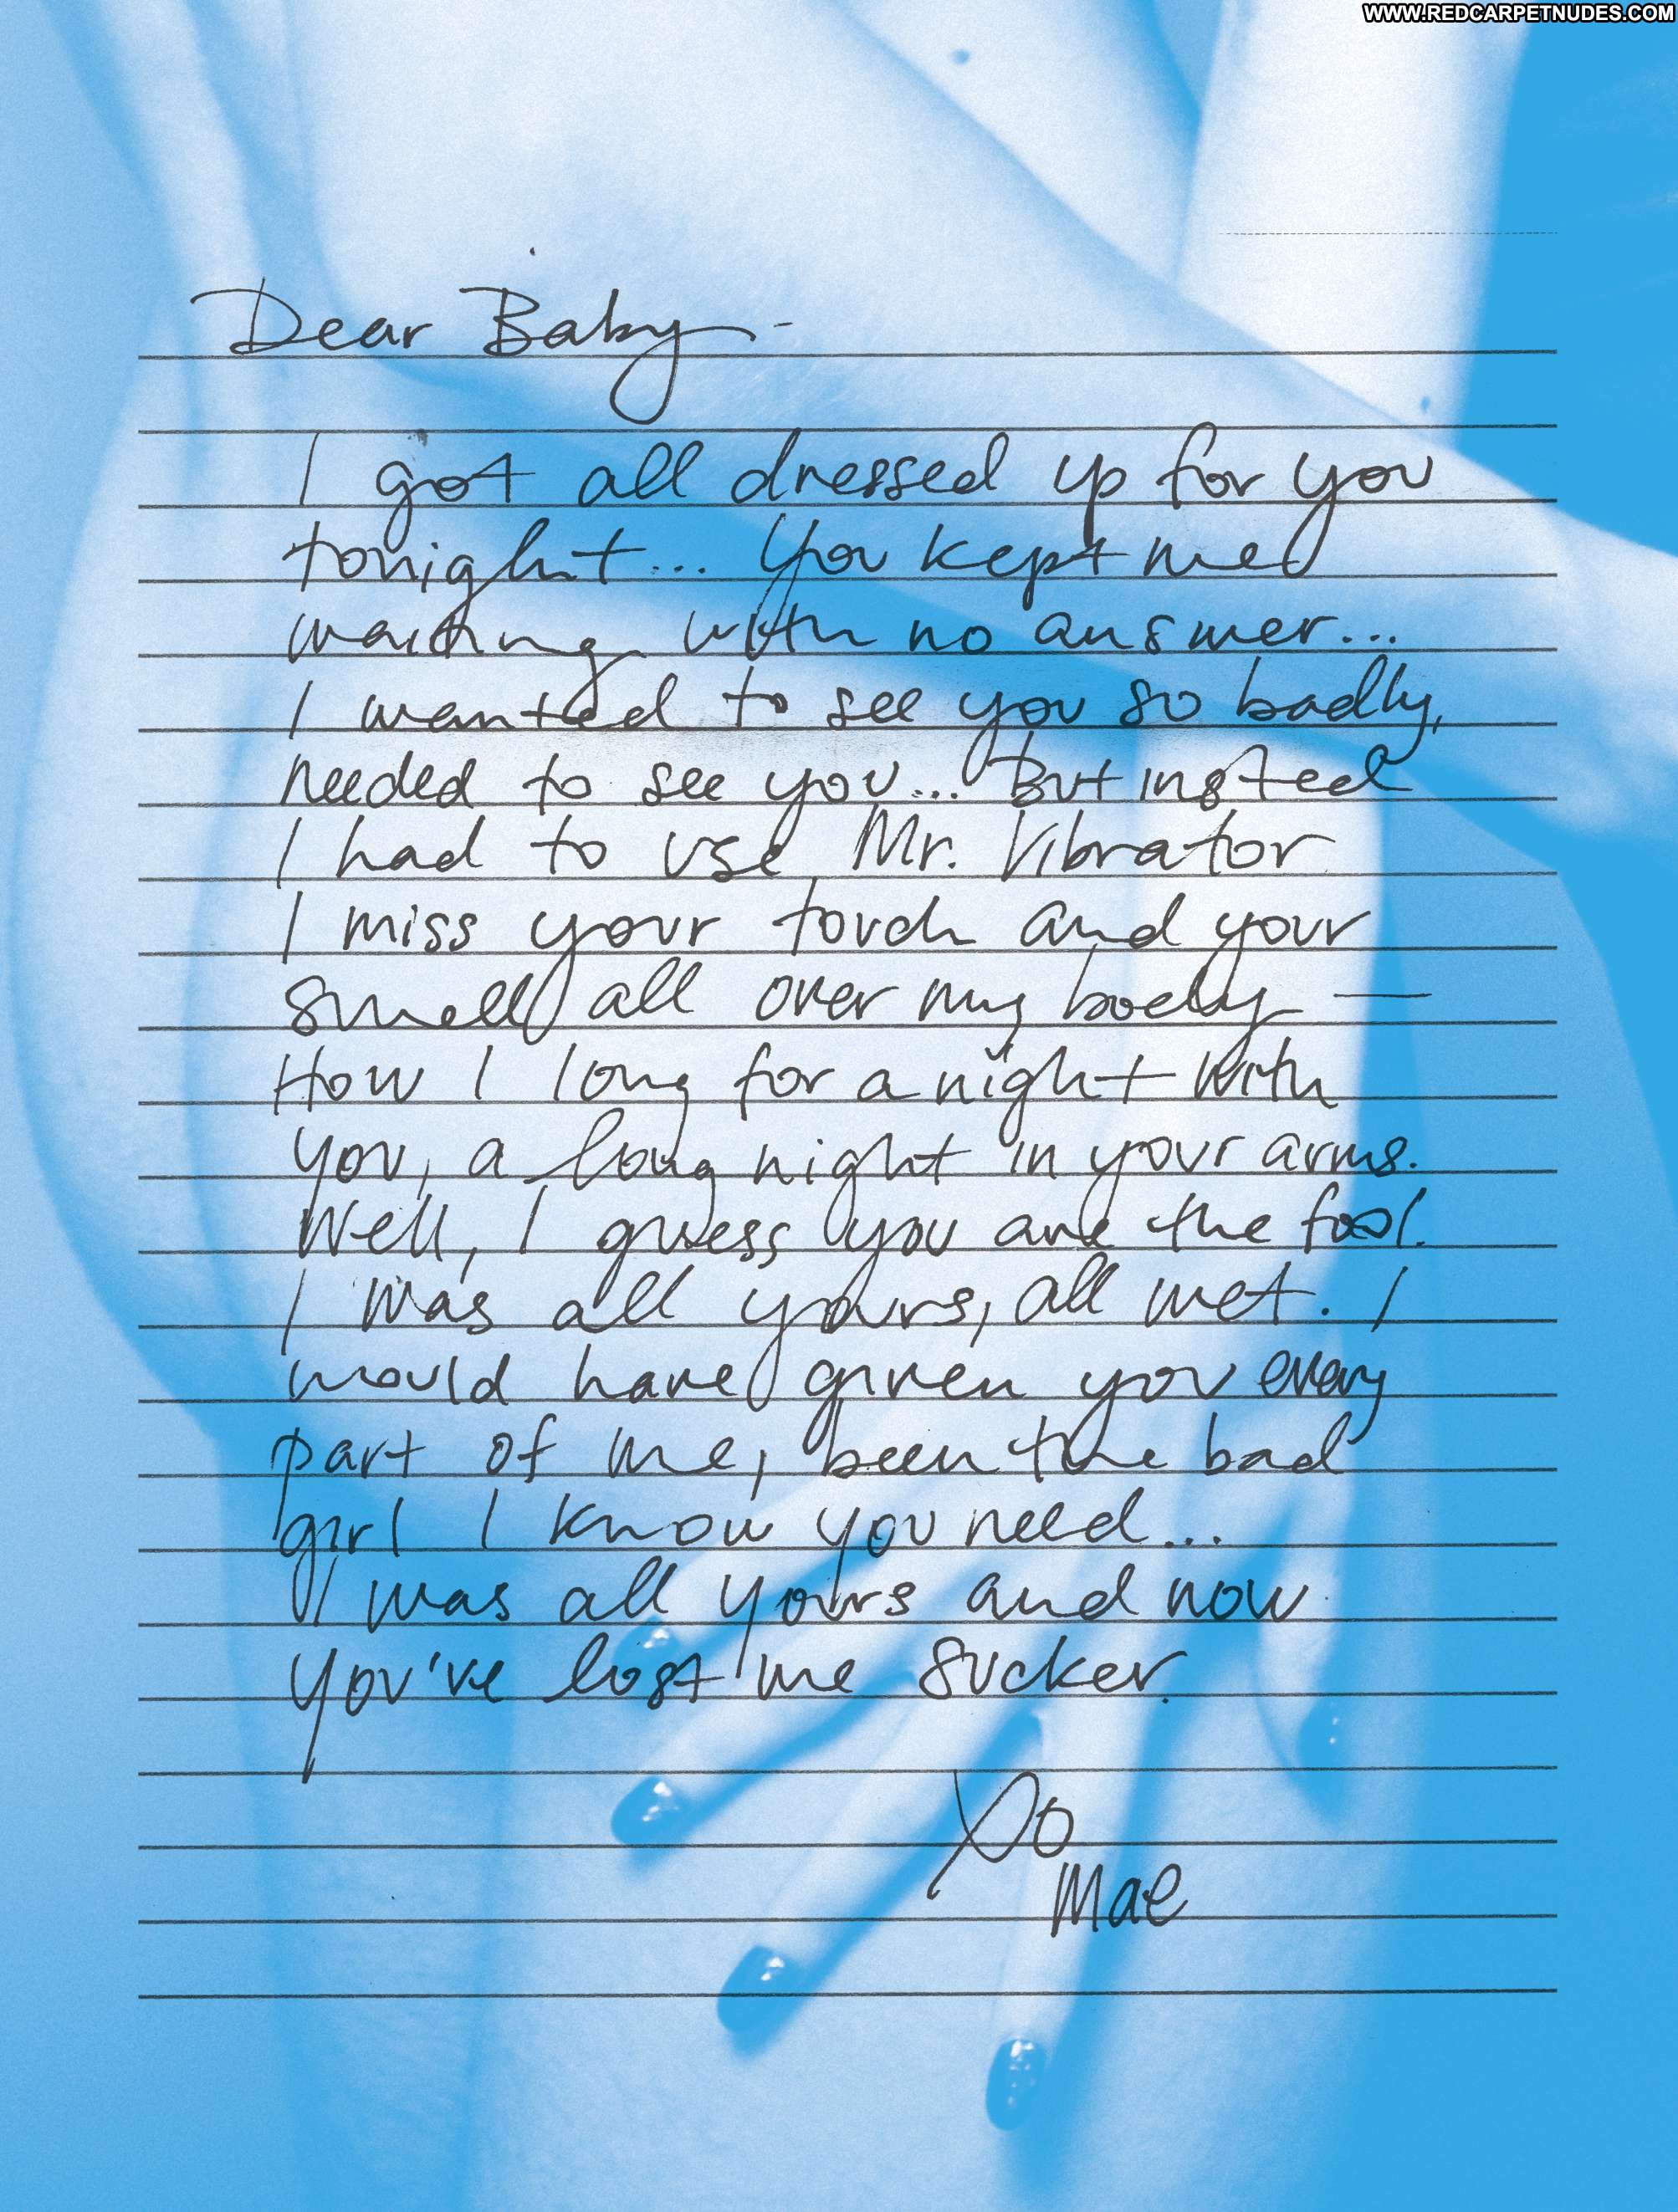 WWW.REDCARPETNUDES.COM
Dear Baby -
I got all dressed up for you
tonight... You kept me
waiting with no answer...
I wanted to see you so badly,
needed to see you... But insted
I had to use Mr. Vibrator
I miss your touch and your
smell all over my body —
How I long for a night with
you, a long night in your arms.
Well, I guess you are the fool.
I was all yours, all wet. I
would have given you every
part of me, been the bad
girl I know you need...
I was all yours and now
you've lost me sucker.
XO
Mae